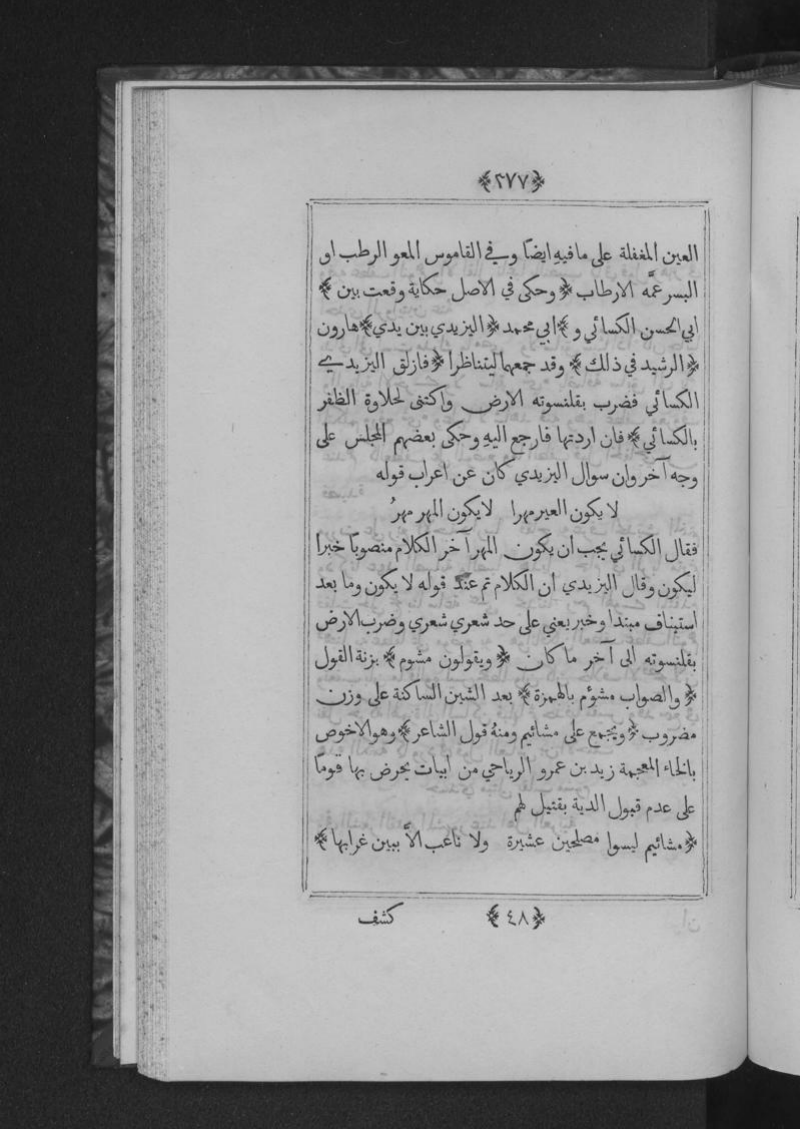 ﴿٣٧٧﴾
العين المغفلة على ما فيهِ ايضًا وفي القاموس المعو الرطب او
البسر عمَّه الارطاب ﴿ وحكى في الاصل حكاية وقعت بين ﴾
ابي الحسن الكسائي و ﴾ ابي محمد ﴿ اليزيدي بين يدي ﴾ هارون
﴿ الرشيد في ذلك ﴾ وقد جمعهما ليتناظرا ﴿ فازلق اليزيدي
الكسائي فضرب بقلنسوته الارض واكتنى لحلاوة الظفر
بالكسائي ﴾ فان اردتها فارجع اليهِ وحكى بعضهم المجلس على
وجه آخر وان سوال اليزيدي كان عن اعراب قوله
لا يكون العير مهرا لا يكون المهر مهرُ
فقال الكسائي يجب ان يكون المهر آخر الكلام منصوبًا خبرا
ليكون وقال اليزيدي ان الكلام تم عند قوله لا يكون وما بعد
استيناف مبتدا وخبر يعني على حد شعري شعري وضرب الارض
بقلنسوته الى آخر ما كان ﴿ ويقولون مشوم ﴾ بزنة القول
﴿ والصواب مشؤم بالهمزة ﴾ بعد الشين الساكنة على وزن
مضروب ﴿ ويجمع على مشائيم ومنهُ قول الشاعر ﴾ وهو الاخوص
بالخاء المعجمة زيد بن عمرو الرياحي من ابيات يحرض بها قومًا
على عدم قبول الدية بقتيل لهم
﴿ مشائيم ليسوا مصلحين عشيرة ولا ناعب الاَّ ببين غرابها ﴾
﴿٤٨﴾ كشف